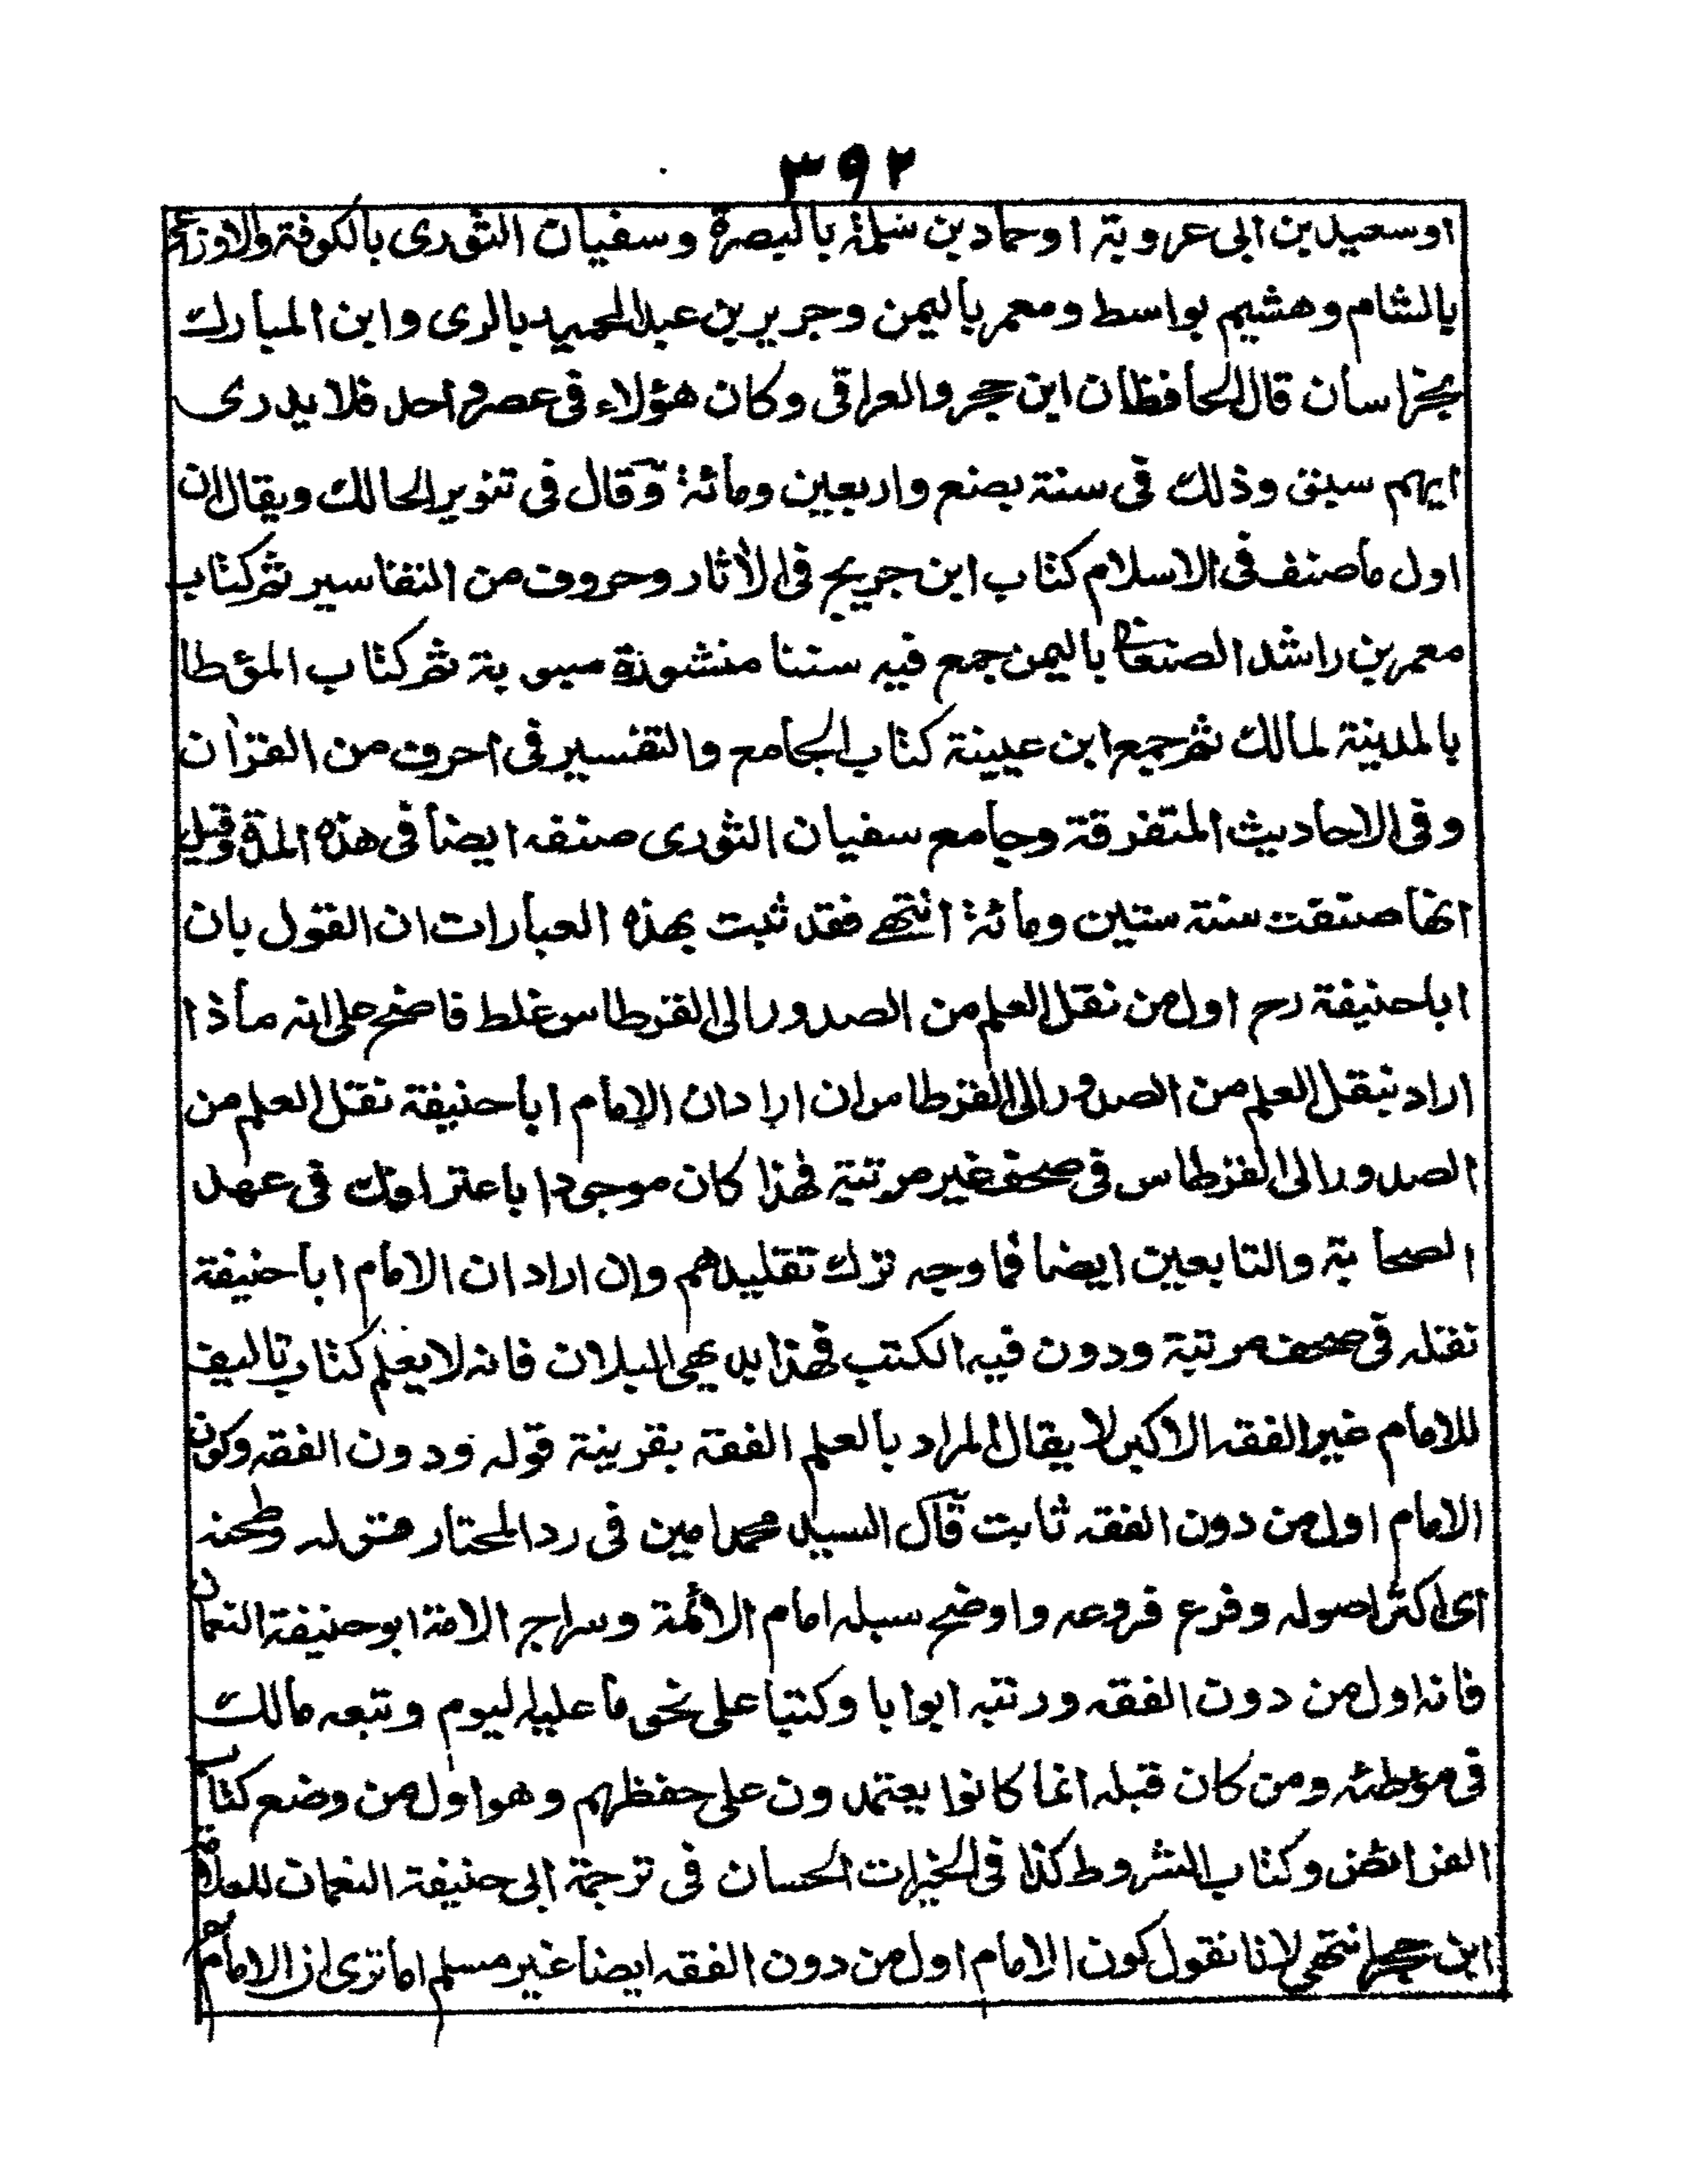 ٣٩٢
او سعيد بن ابى عروبة او حماد بن سلمة بالبصرة و سفيان الثورى بالكوفة والاوزاعى
بالشام وهشيم بواسط ومعمر باليمن وجرير بن عبدالحميد بالرى وابن المبارك
بخراسان قال الحافظان ابن حجر والعراقى وكان هؤلاء فى عصر واحد فلا يدرى
ايهم سبق وذلك فى سنة بضع واربعين ومائة وقال فى تنوير الحالك ويقال ان
اول ما صنف فى الاسلام كتاب ابن جريج فى الآثار وحروف من التفاسير ثم كتاب
معمر بن راشد الصنعانى باليمن جمع فيه سننا منثورة مبوبة ثم كتاب المؤطا
بالمدينة لمالك ثم جمع ابن عيينة كتاب الجامع والتفسير فى احرف من القرآن
وفى الاحاديث المتفرقة وجامع سفيان الثورى صنفه ايضا فى هذه المدة وقيل
انها صنفت سنة ستين ومائة انتهے فقد ثبت بهذه العبارات ان القول بان
اباحنيفة رح اول من نقل العلم من الصدور الى القرطاس غلط فاضح على انه ماذا
اراد بنقل العلم من الصدور الى القرطاس ان اراد ان الامام اباحنيفة نقل العلم من
الصدور الى القرطاس فى صحف غير مرتبة فهذا كان موجودا باعترافك فى عهد
الصحابة والتابعين ايضا فما وجه ترك تقليدهم وان اراد ان الامام اباحنيفة
نقله فى صحف مرتبة ودون فيه الكتب فهذا بديهى البطلان فانه لا يعلم كتاب تاليف
للامام غير الفقه الاكبر لا يقال المراد بالعلم الفقه بقرينة قوله ودون الفقه وكون
الامام اول من دون الفقه ثابت قال السيد محمد امين فى رد المحتار قوله وطحنه
اى اكثر اصوله وفرع فروعه واوضح سبله امام الائمة وسراج الامة ابو حنيفة النعمان
فانه اول من دون الفقه ورتبه ابوابا وكتبا على نحو ما عليه اليوم وتبعه مالك
فى مؤطئه ومن كان قبله انما كانوا يعتمدون على حفظهم وهو اول من وضع كتاب
الفرائض وكتاب الشروط كذا فى الخيرات الحسان فى ترجمة ابى حنيفة النعمان للعلامة
ابن حجر انتهى لانا نقول كون الامام اول من دون الفقه ايضا غير مسلم اما ترى ان الامام